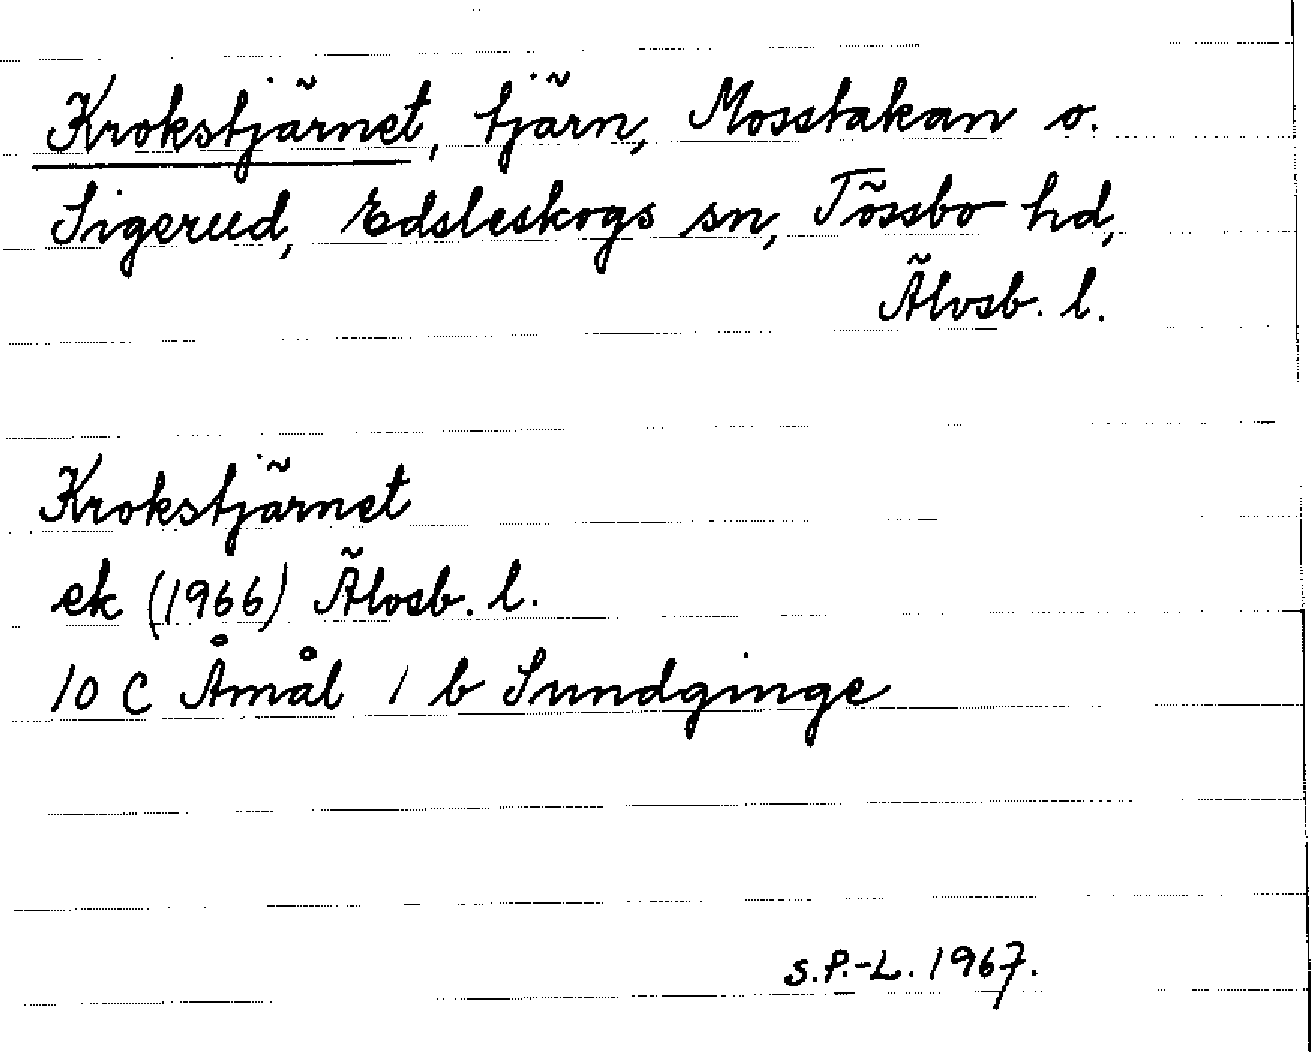 Krokstjärnet, tjärn, Mosstakan o.
Sigerud, Edsleskogs sn, Tössbo hd,
Älvsb. l.
Krokstjärnet
ek (1966) Älvsb. l.
10 C Åmål 1 b Sundginge
S.P.-L. 1967.